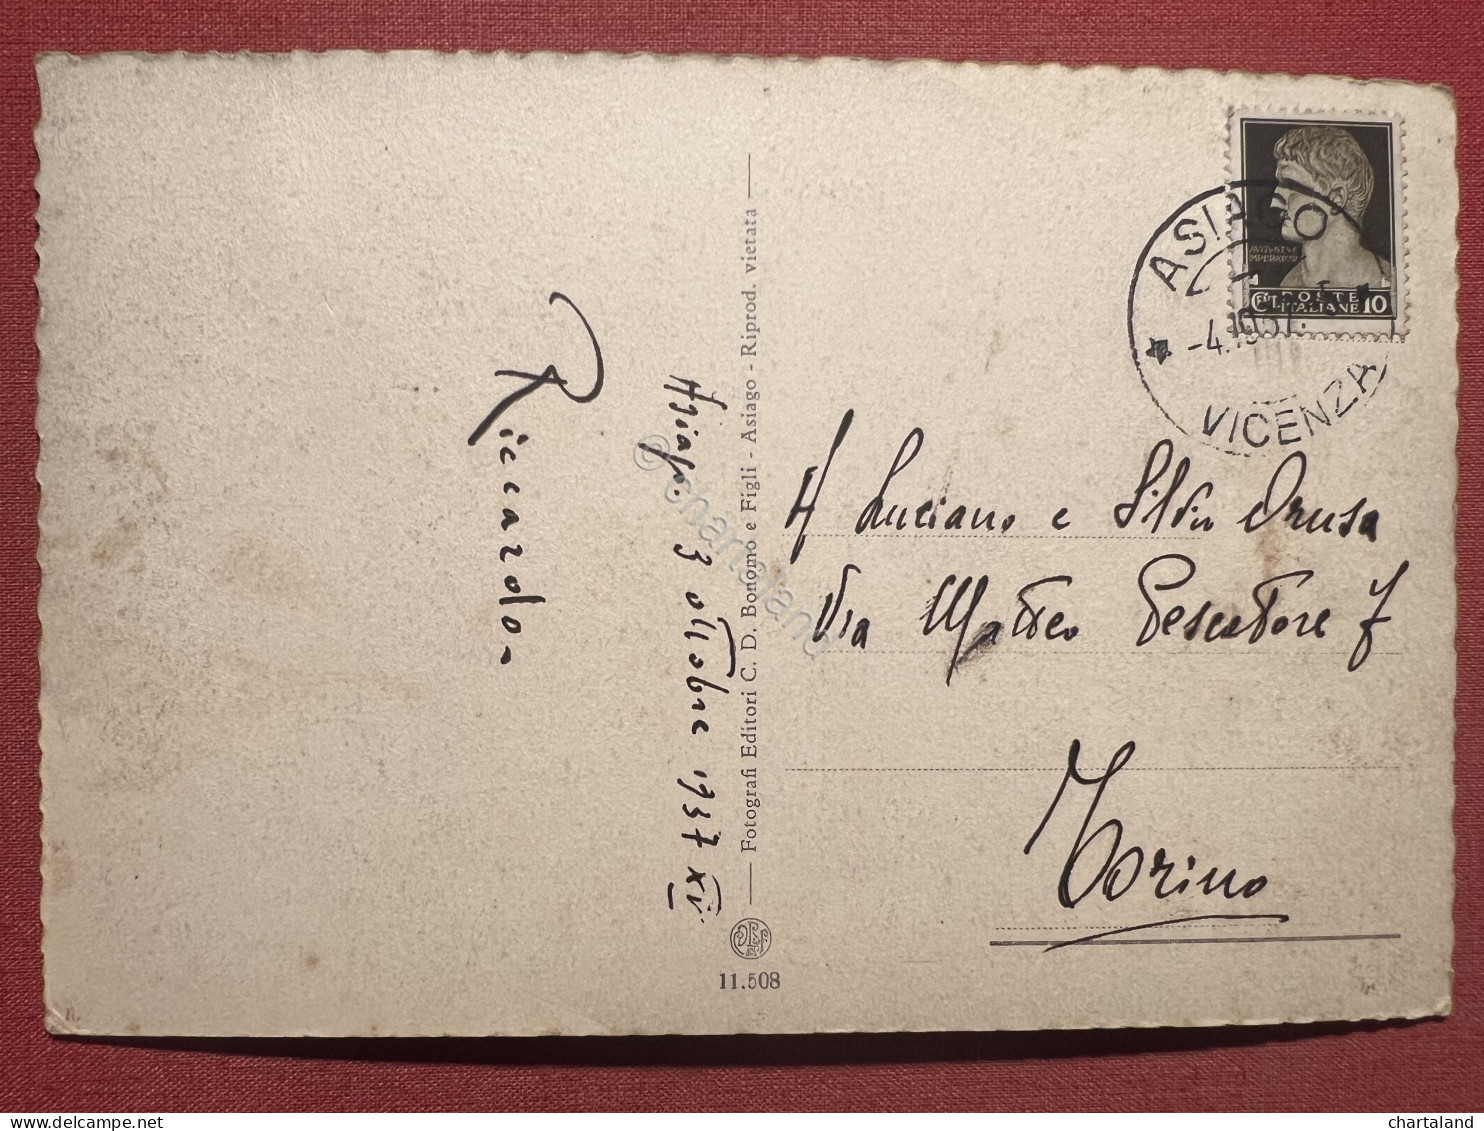 Riccardo -
Asiago. 3 ottobre 1937 XV
Fotografi Editori C. D. Bonomo e Figli - Asiago - Riprod. vietata
11.508
ASIAGO
VICENZA
AVGVSTVS
IMPERATOR
POSTE
ITALIANE
CENT. 10
A Luciano e Silvia Drusa
Via Matteo Pescatore 7
Torino
© chartaland
delcampe.net
chartaland